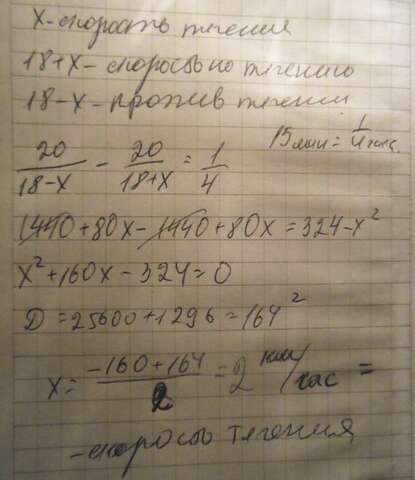 x - скорость течения
18+x - скорость по течению
18-x - против течения
15 мин = 1/4 часа
20/(18-x) - 20/(18+x) = 1/4
1440+80x-1440+80x=324-x²
x²+160x-324=0
D=25600+1296=164²
x= (-160+164)/2 = 2 км/час =
- скорость течения